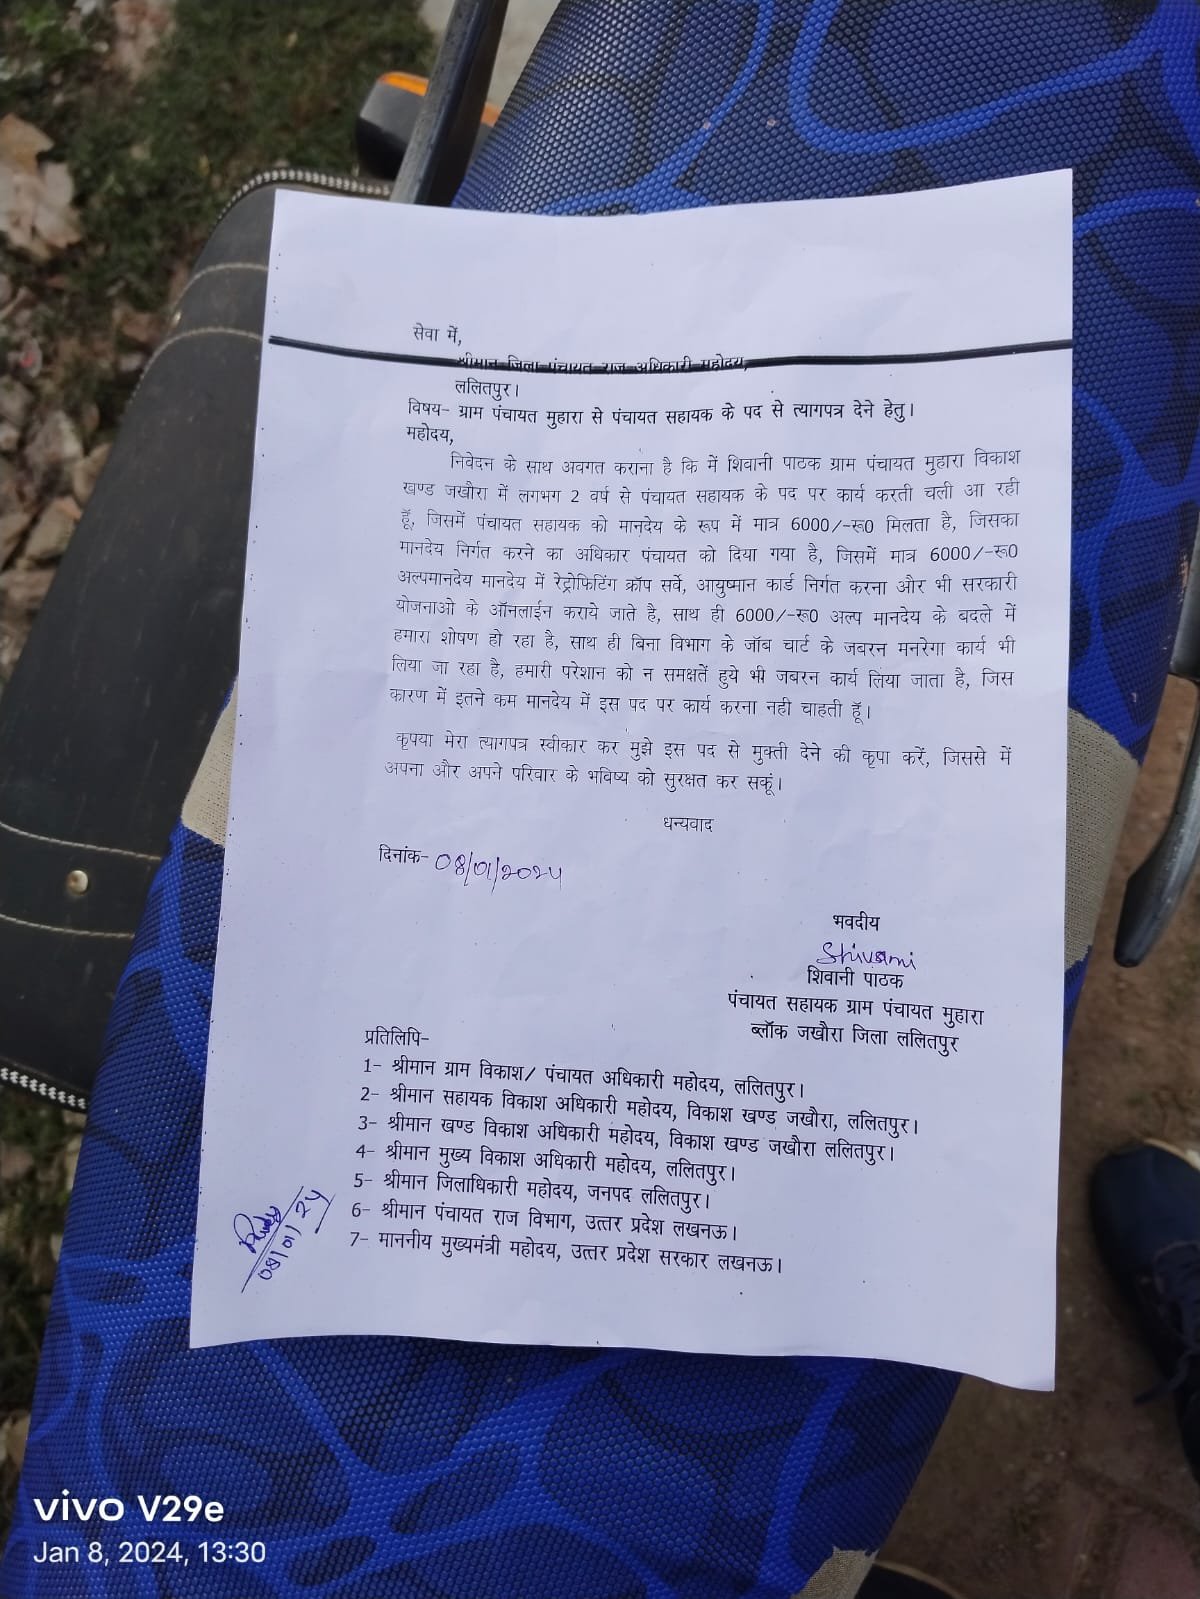 सेवा में,
श्रीमान जिला पंचायत राज अधिकारी महोदय,
ललितपुर।
विषय- ग्राम पंचायत मुहारा से पंचायत सहायक के पद से त्यागपत्र देने हेतु।
महोदय,
निवेदन के साथ अवगत कराना है कि में शिवानी पाठक ग्राम पंचायत मुहारा विकाश
खण्ड जखौरा में लगभग 2 वर्ष से पंचायत सहायक के पद पर कार्य करती चली आ रही
हूँ, जिसमें पंचायत सहायक को मानदेय के रूप में मात्र 6000/-रू0 मिलता है, जिसका
मानदेय निर्गत करने का अधिकार पंचायत को दिया गया है, जिसमें मात्र 6000/-रू0
अल्पमानदेय मानदेय में रेट्रोफिटिंग क्रॉप सर्वे, आयुष्मान कार्ड निर्गत करना और भी सरकारी
योजनाओ के ऑनलाईन कराये जाते है, साथ ही 6000/-रू0 अल्प मानदेय के बदले में
हमारा शोषण हो रहा है, साथ ही बिना विभाग के जॉब चार्ट के जबरन मनरेगा कार्य भी
लिया जा रहा है, हमारी परेशान को न समक्षतें हुये भी जबरन कार्य लिया जाता है, जिस
कारण में इतने कम मानदेय में इस पद पर कार्य करना नही चाहती हूँ।
कृपया मेरा त्यागपत्र स्वीकार कर मुझे इस पद से मुक्ती देने की कृपा करें, जिससे में
अपना और अपने परिवार के भविष्य को सुरक्षत कर सकूं।
धन्यवाद
दिनांक- 08/01/2024
भवदीय
Shivani
शिवानी पाठक
पंचायत सहायक ग्राम पंचायत मुहारा
ब्लॉक जखौरा जिला ललितपुर
प्रतिलिपि-
1- श्रीमान ग्राम विकाश/ पंचायत अधिकारी महोदय, ललितपुर।
2- श्रीमान सहायक विकाश अधिकारी महोदय, विकाश खण्ड जखौरा, ललितपुर।
3- श्रीमान खण्ड विकाश अधिकारी महोदय, विकाश खण्ड जखौरा ललितपुर।
4- श्रीमान मुख्य विकाश अधिकारी महोदय, ललितपुर।
5- श्रीमान जिलाधिकारी महोदय, जनपद ललितपुर।
6- श्रीमान पंचायत राज विभाग, उत्तर प्रदेश लखनऊ।
7- माननीय मुख्यमंत्री महोदय, उत्तर प्रदेश सरकार लखनऊ।
08/01/24
vivo V29e
Jan 8, 2024, 13:30